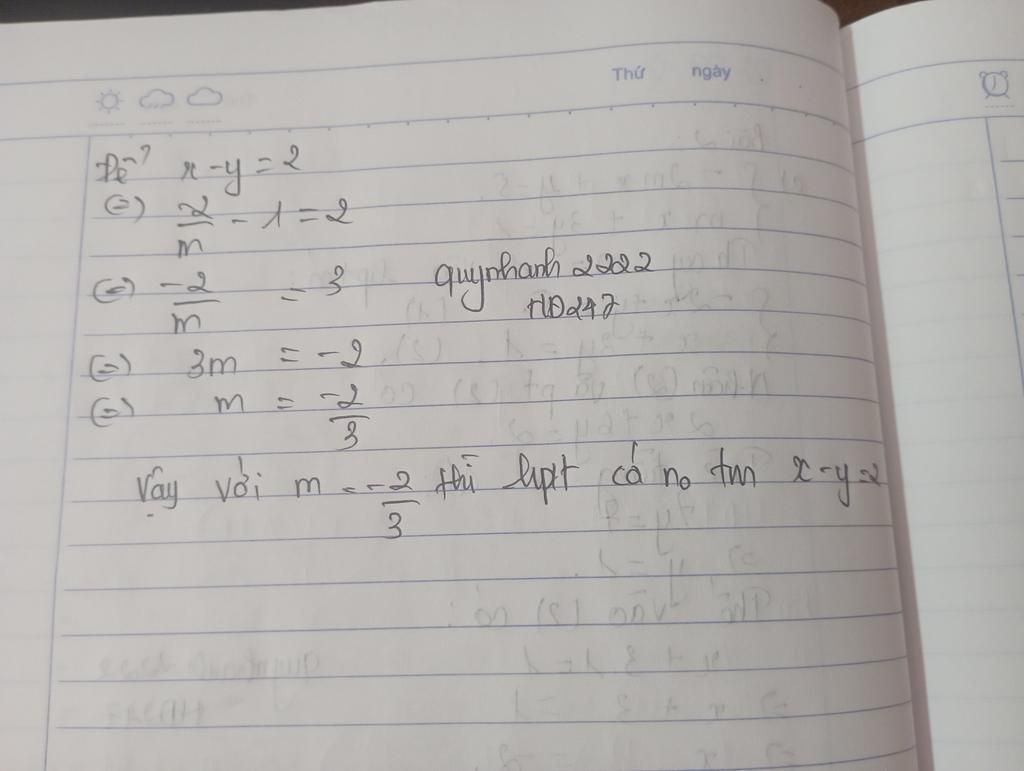 Thứ ngày
Để x - y = 2
(=) -2/m - 1 = 2
(=) -2/m = 3
quynhanh 2222
HD247
(=) 3m = -2
(=) m = -2/3
Vậy với m = -2/3 thì hpt có no tm x - y = 2